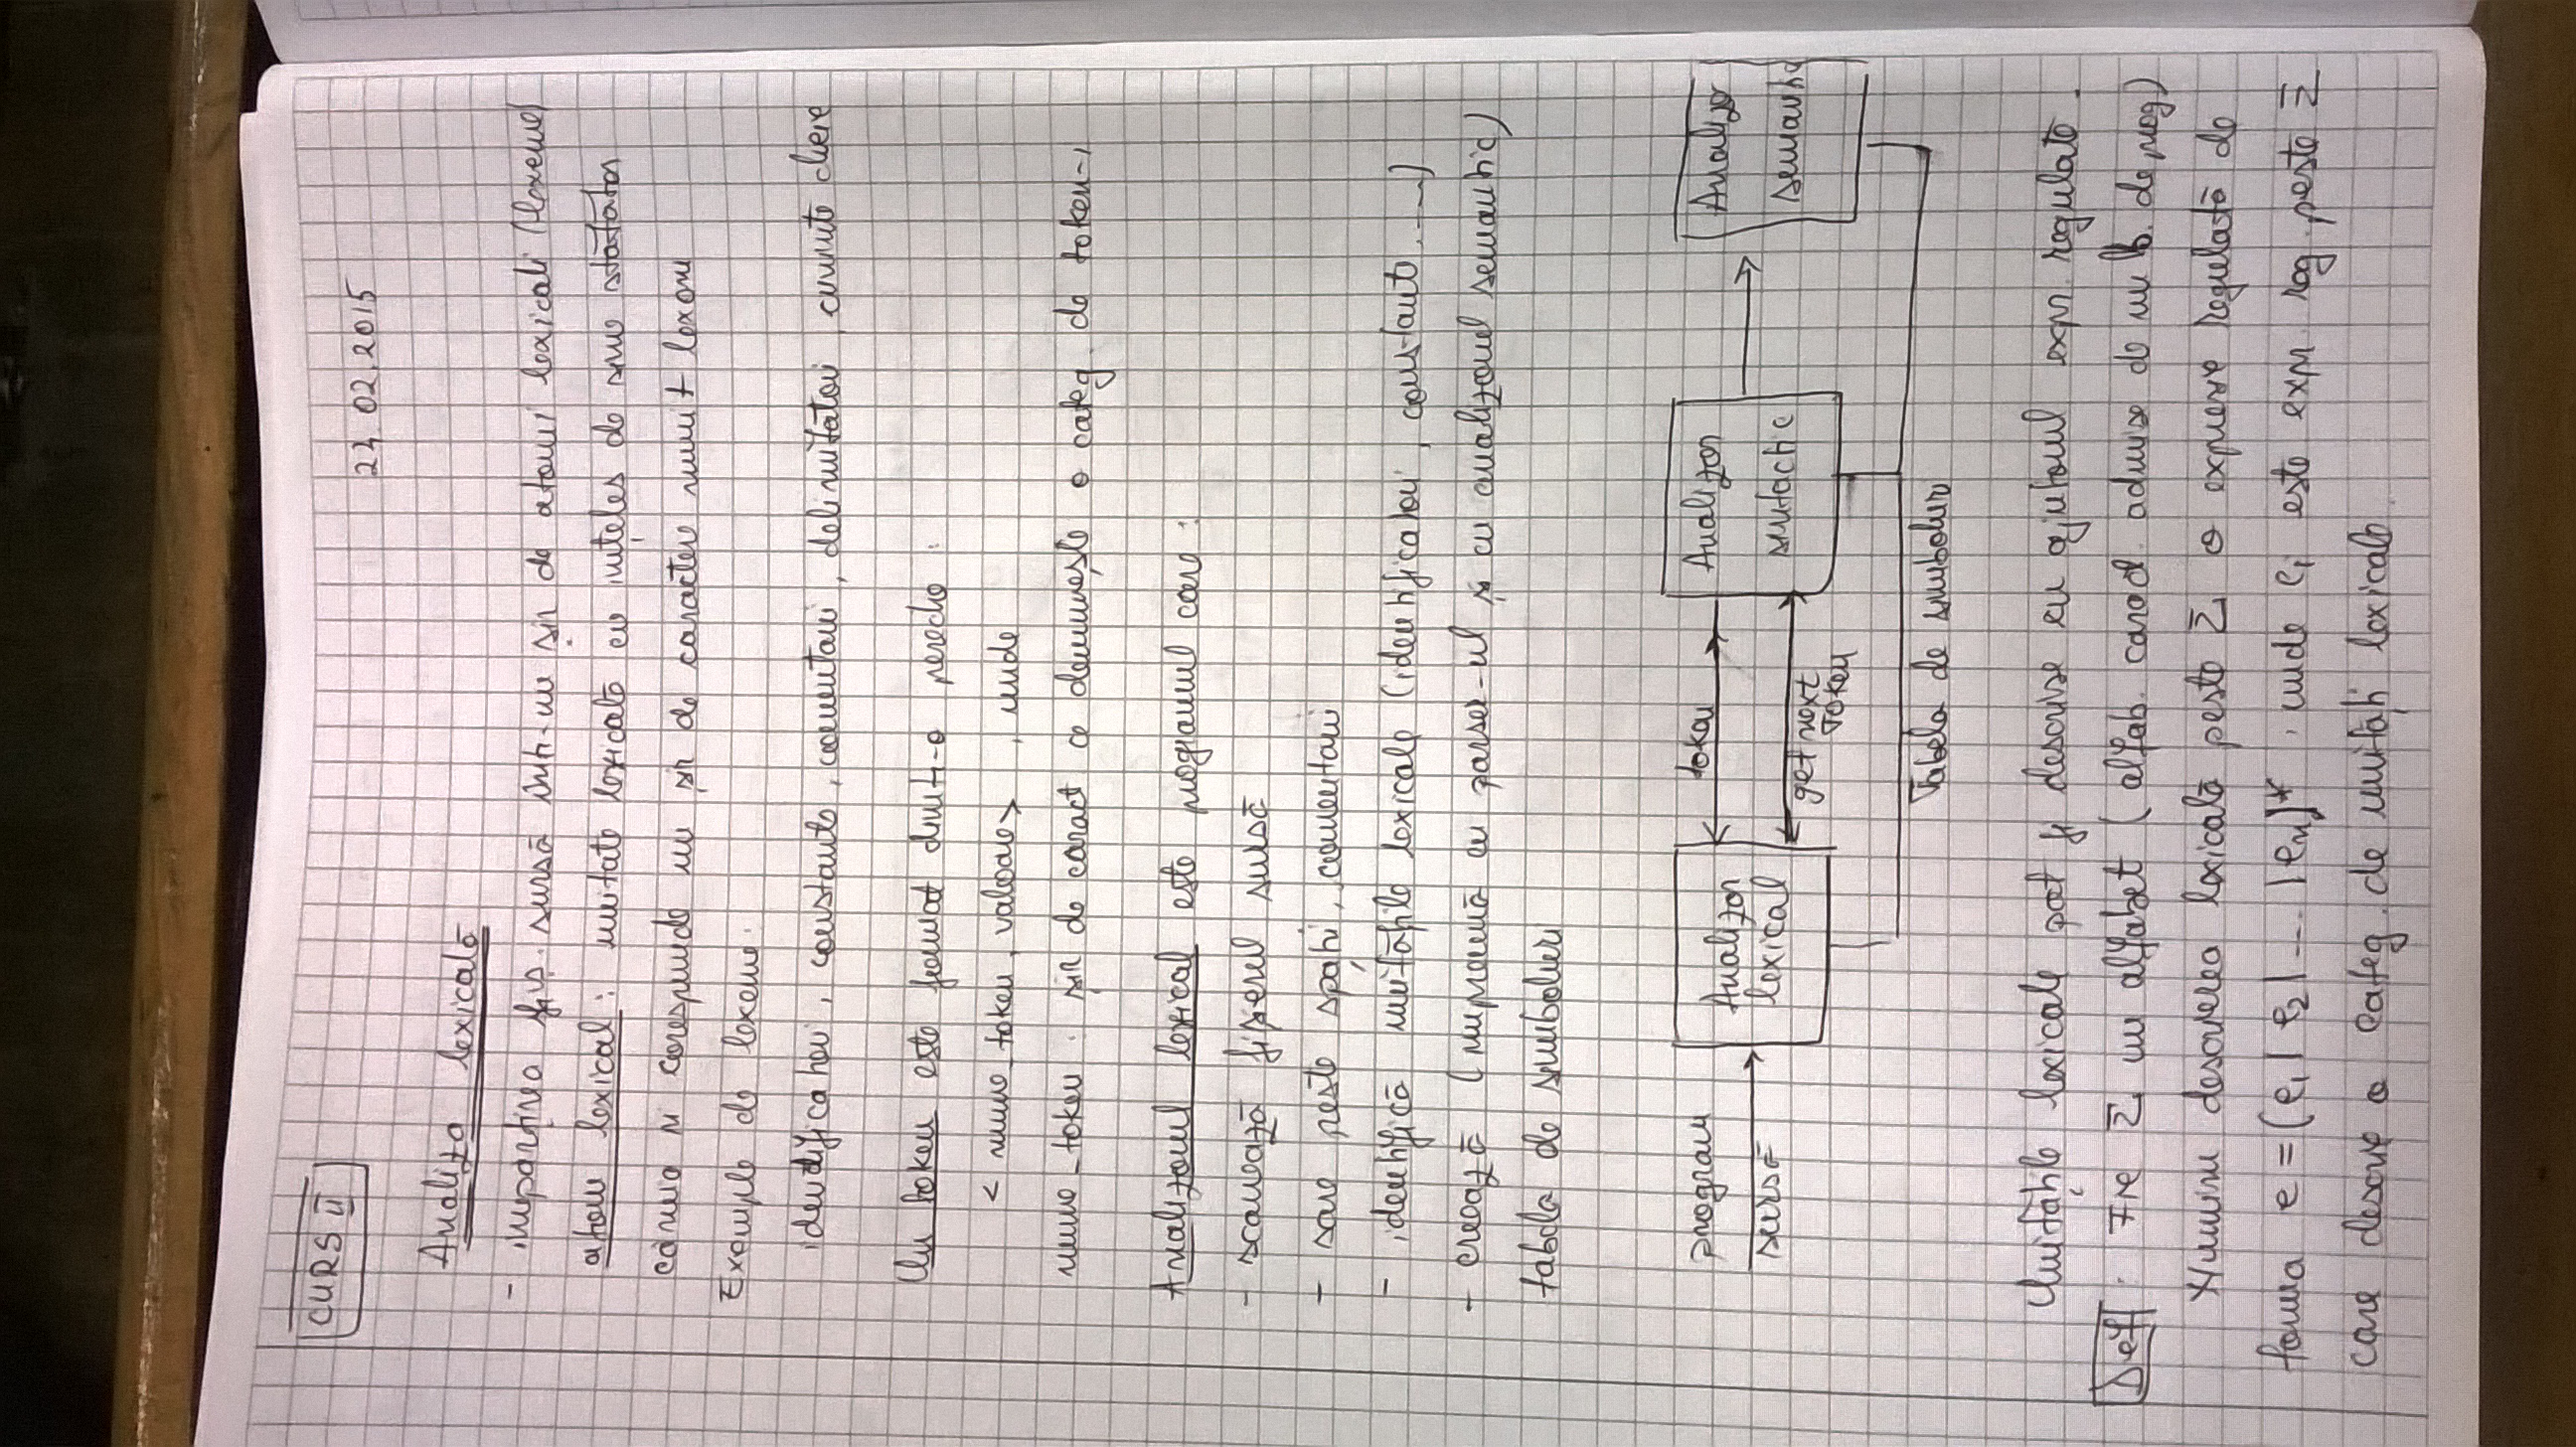 CURS II
23.02.2015
Analiza lexicală
- împărțirea fiș. sursă într-un șir de atomi lexicali (lexeme)
atom lexical: unitate lexicală cu înțeles de sine stătător
căruia îi corespunde un șir de caractere numit lexem
Exemple de lexeme:
identificatori, constante, comentarii, delimitatori, cuvinte cheie
Un token este format dintr-o pereche:
< nume_token, valoare> , unde
nume_token: șir de caract ce denumește o categ. de token-i
Analizorul lexical este programul care:
- scanează fișierul sursă
- sare peste spații, comentarii
- identifică unitățile lexicale (identificatori, constante, ...)
- creează (împreună cu parser-ul și cu analizorul semantic)
tabela de simboluri
program
sursă
Analizor
lexical
token
get next
Token
Analizor
sintactic
Analizor
semantic
Tabela de simboluri
Unitățile lexicale pot fi descrise cu ajutorul expr. regulate.
Def: Fie Σ un alfabet (alfab. caract. admise de un lb. de prog)
Numim descrierea lexicală peste Σ o expresie regulată de
forma e = (e₁ | e₂ | ... | eₙ)* , unde eᵢ este expr. reg. peste Σ
care descrie o categ. de unități lexicale.